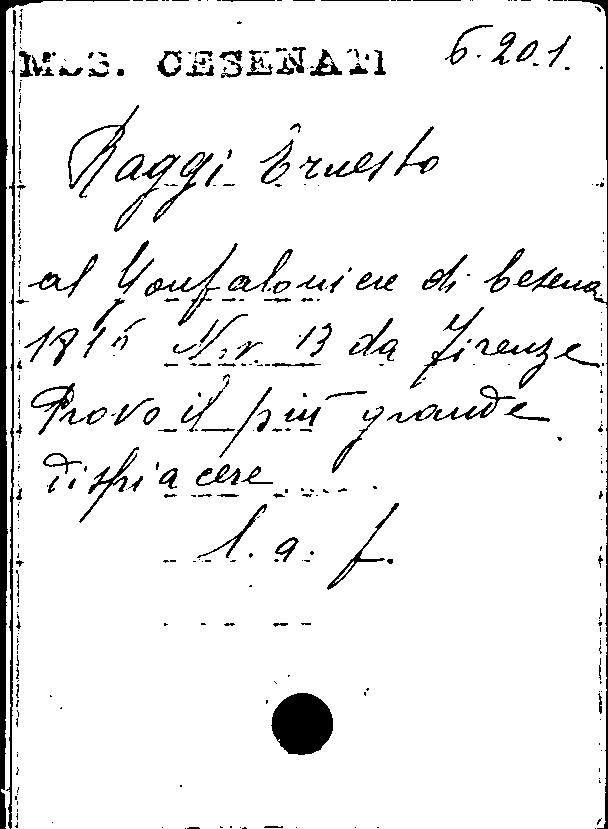 MSS. CESENATI 6.20.1.
Raggi Ernesto
al Gonfaloniere di Cesena
1815 Nov. 13 da Firenze
Provo il più grande
dispiacere
l. a. f.